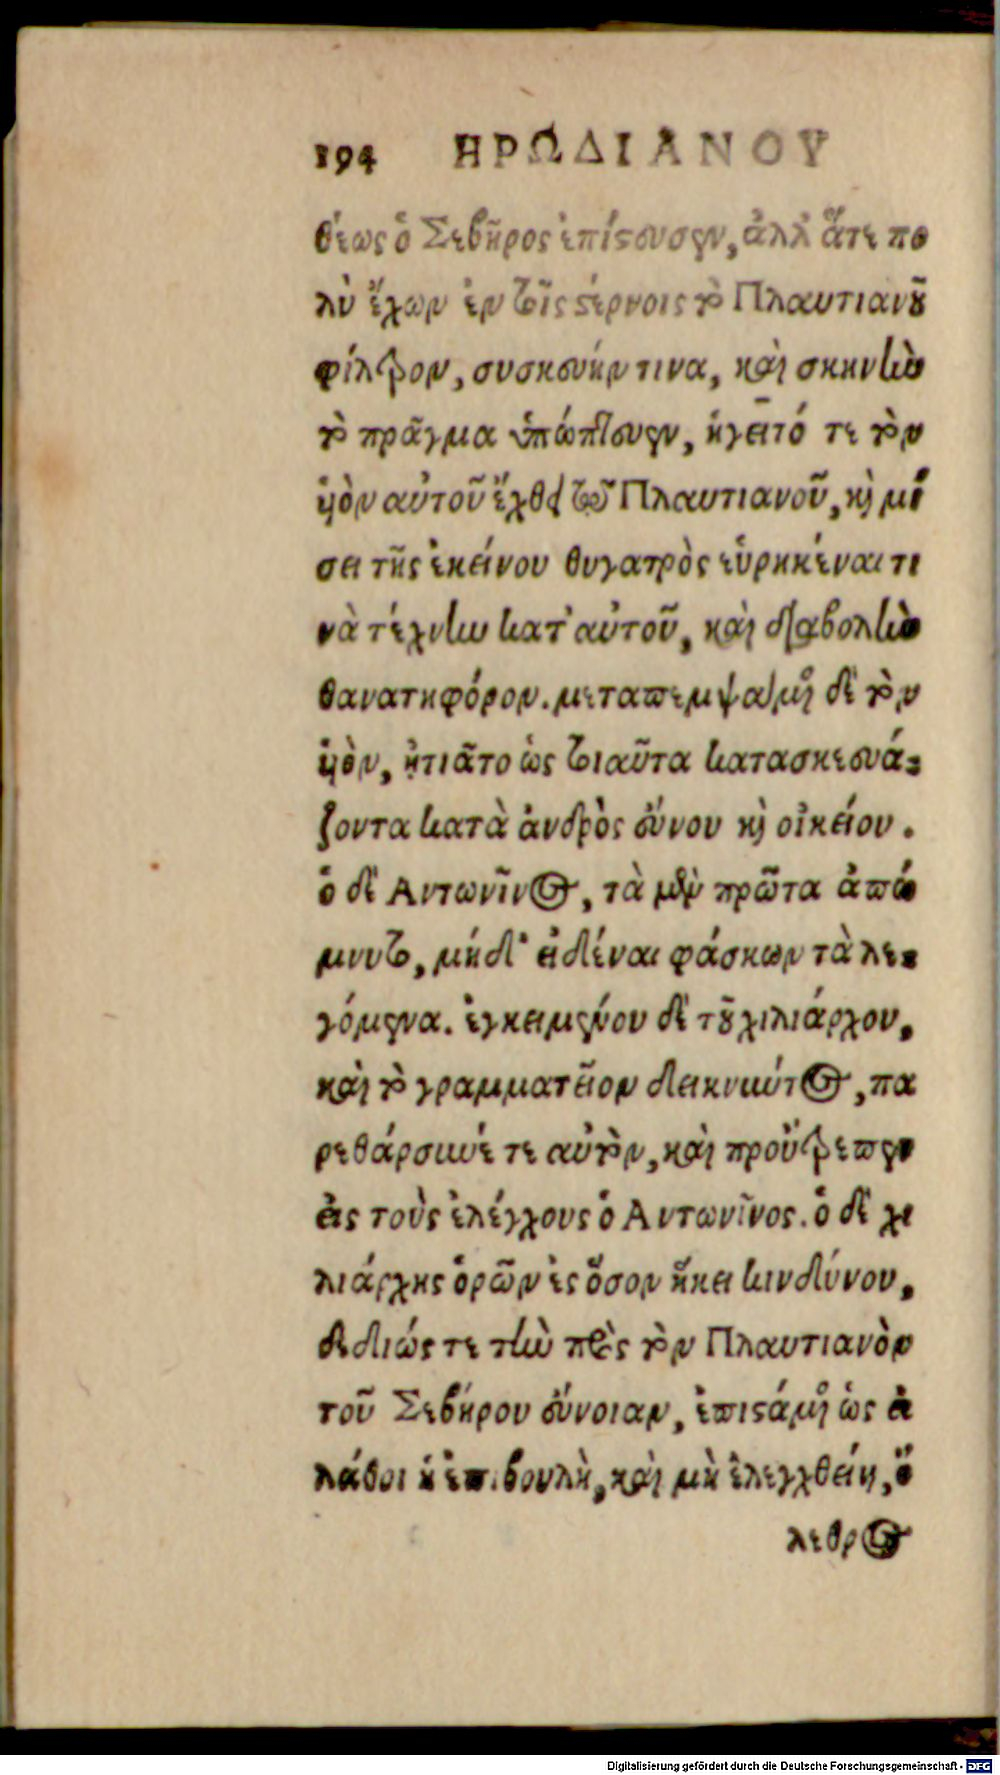 194 ΗΡΩΔΙΑΝΟΥ
θέως ὁ Σεβῆρος ἐπίστευσεν, ἀλλ' ἅτε πο
λὺ ἔχων ἐν τοῖς στέρνοις τὸ Πλαυτιανοῦ
φίλτρον, συσκευήν τινα, καὶ σκηνὴν
τὸ πρᾶγμα ὑπώπτευεν, ἡγεῖτό τε τὸν
υἱὸν αὐτοῦ ἔχθει τοῦ Πλαυτιανοῦ, καὶ μί
σει τῆς ἐκείνου θυγατρὸς εὑρηκέναι τι
νὰ τέχνην κατ' αὐτοῦ, καὶ διαβολὴν
θανατηφόρον. μεταπεμψάμενος δὲ τὸν
υἱὸν, ᾐτιᾶτο ὡς τοιαῦτα κατασκευά-
ζοντα κατὰ ἀνδρὸς εὔνου καὶ οἰκείου.
ὁ δὲ Αντωνῖνος, τὰ μὲν πρῶτα ἀπώ
μνυτο, μήδ' εἰδέναι φάσκων τὰ λε-
γόμενα. ἐγκειμένου δὲ τοῦ χιλιάρχου,
καὶ τὸ γραμματεῖον δεικνύντος, πα
ρεθάρσυνέ τε αὐτὸν, καὶ προὔτρεπεν
εἰς τοὺς ἐλέγχους ὁ Αντωνῖνος. ὁ δὲ χι
λιάρχης ὁρῶν ἐς ὅσον ἥκει κινδύνου,
δεδιώς τε τὴν πρὸς τὸν Πλαυτιανὸν
τοῦ Σεβήρου εὔνοιαν, ἐπιστάμενος ὡς εἰ
λάθοι ἡ ἐπιβουλὴ, καὶ μὴ ἐλεγχθείη, ὄ
λεθρος
Digitalisierung gefördert durch die Deutsche Forschungsgemeinschaft - DFG